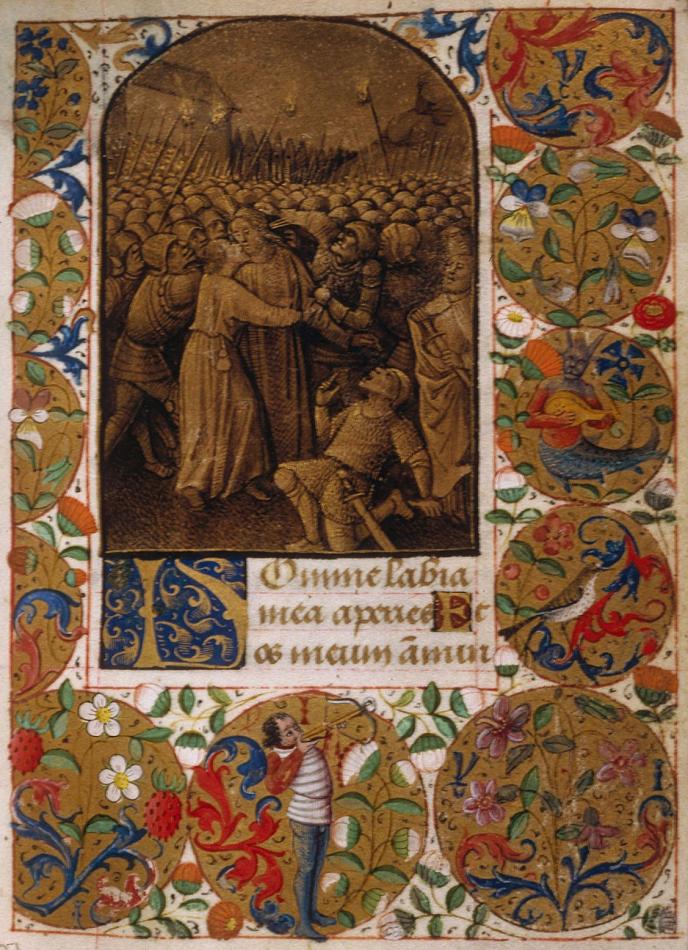 Domine labia
mea aperies Et
os meum ānun